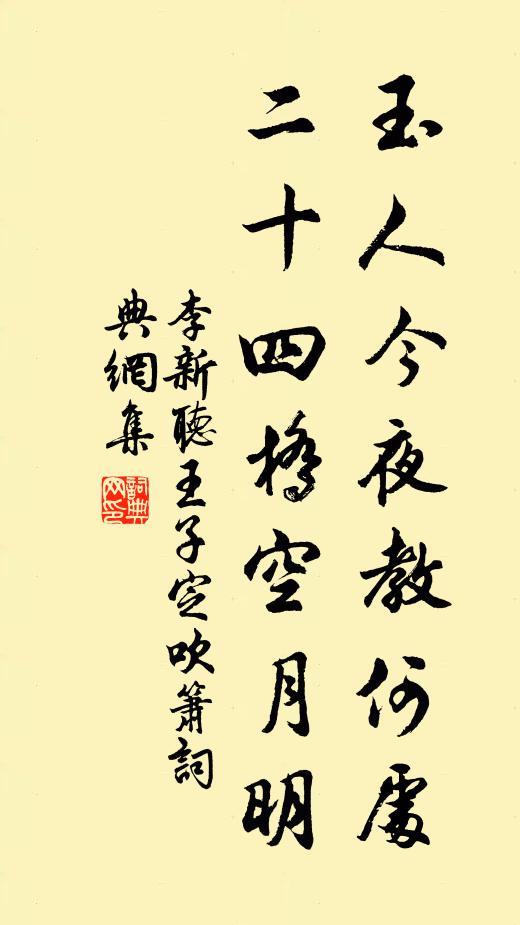 玉人今夜教何處
二十四橋空月明
李新聽王子定吹簫詞
典網集
詞典網印